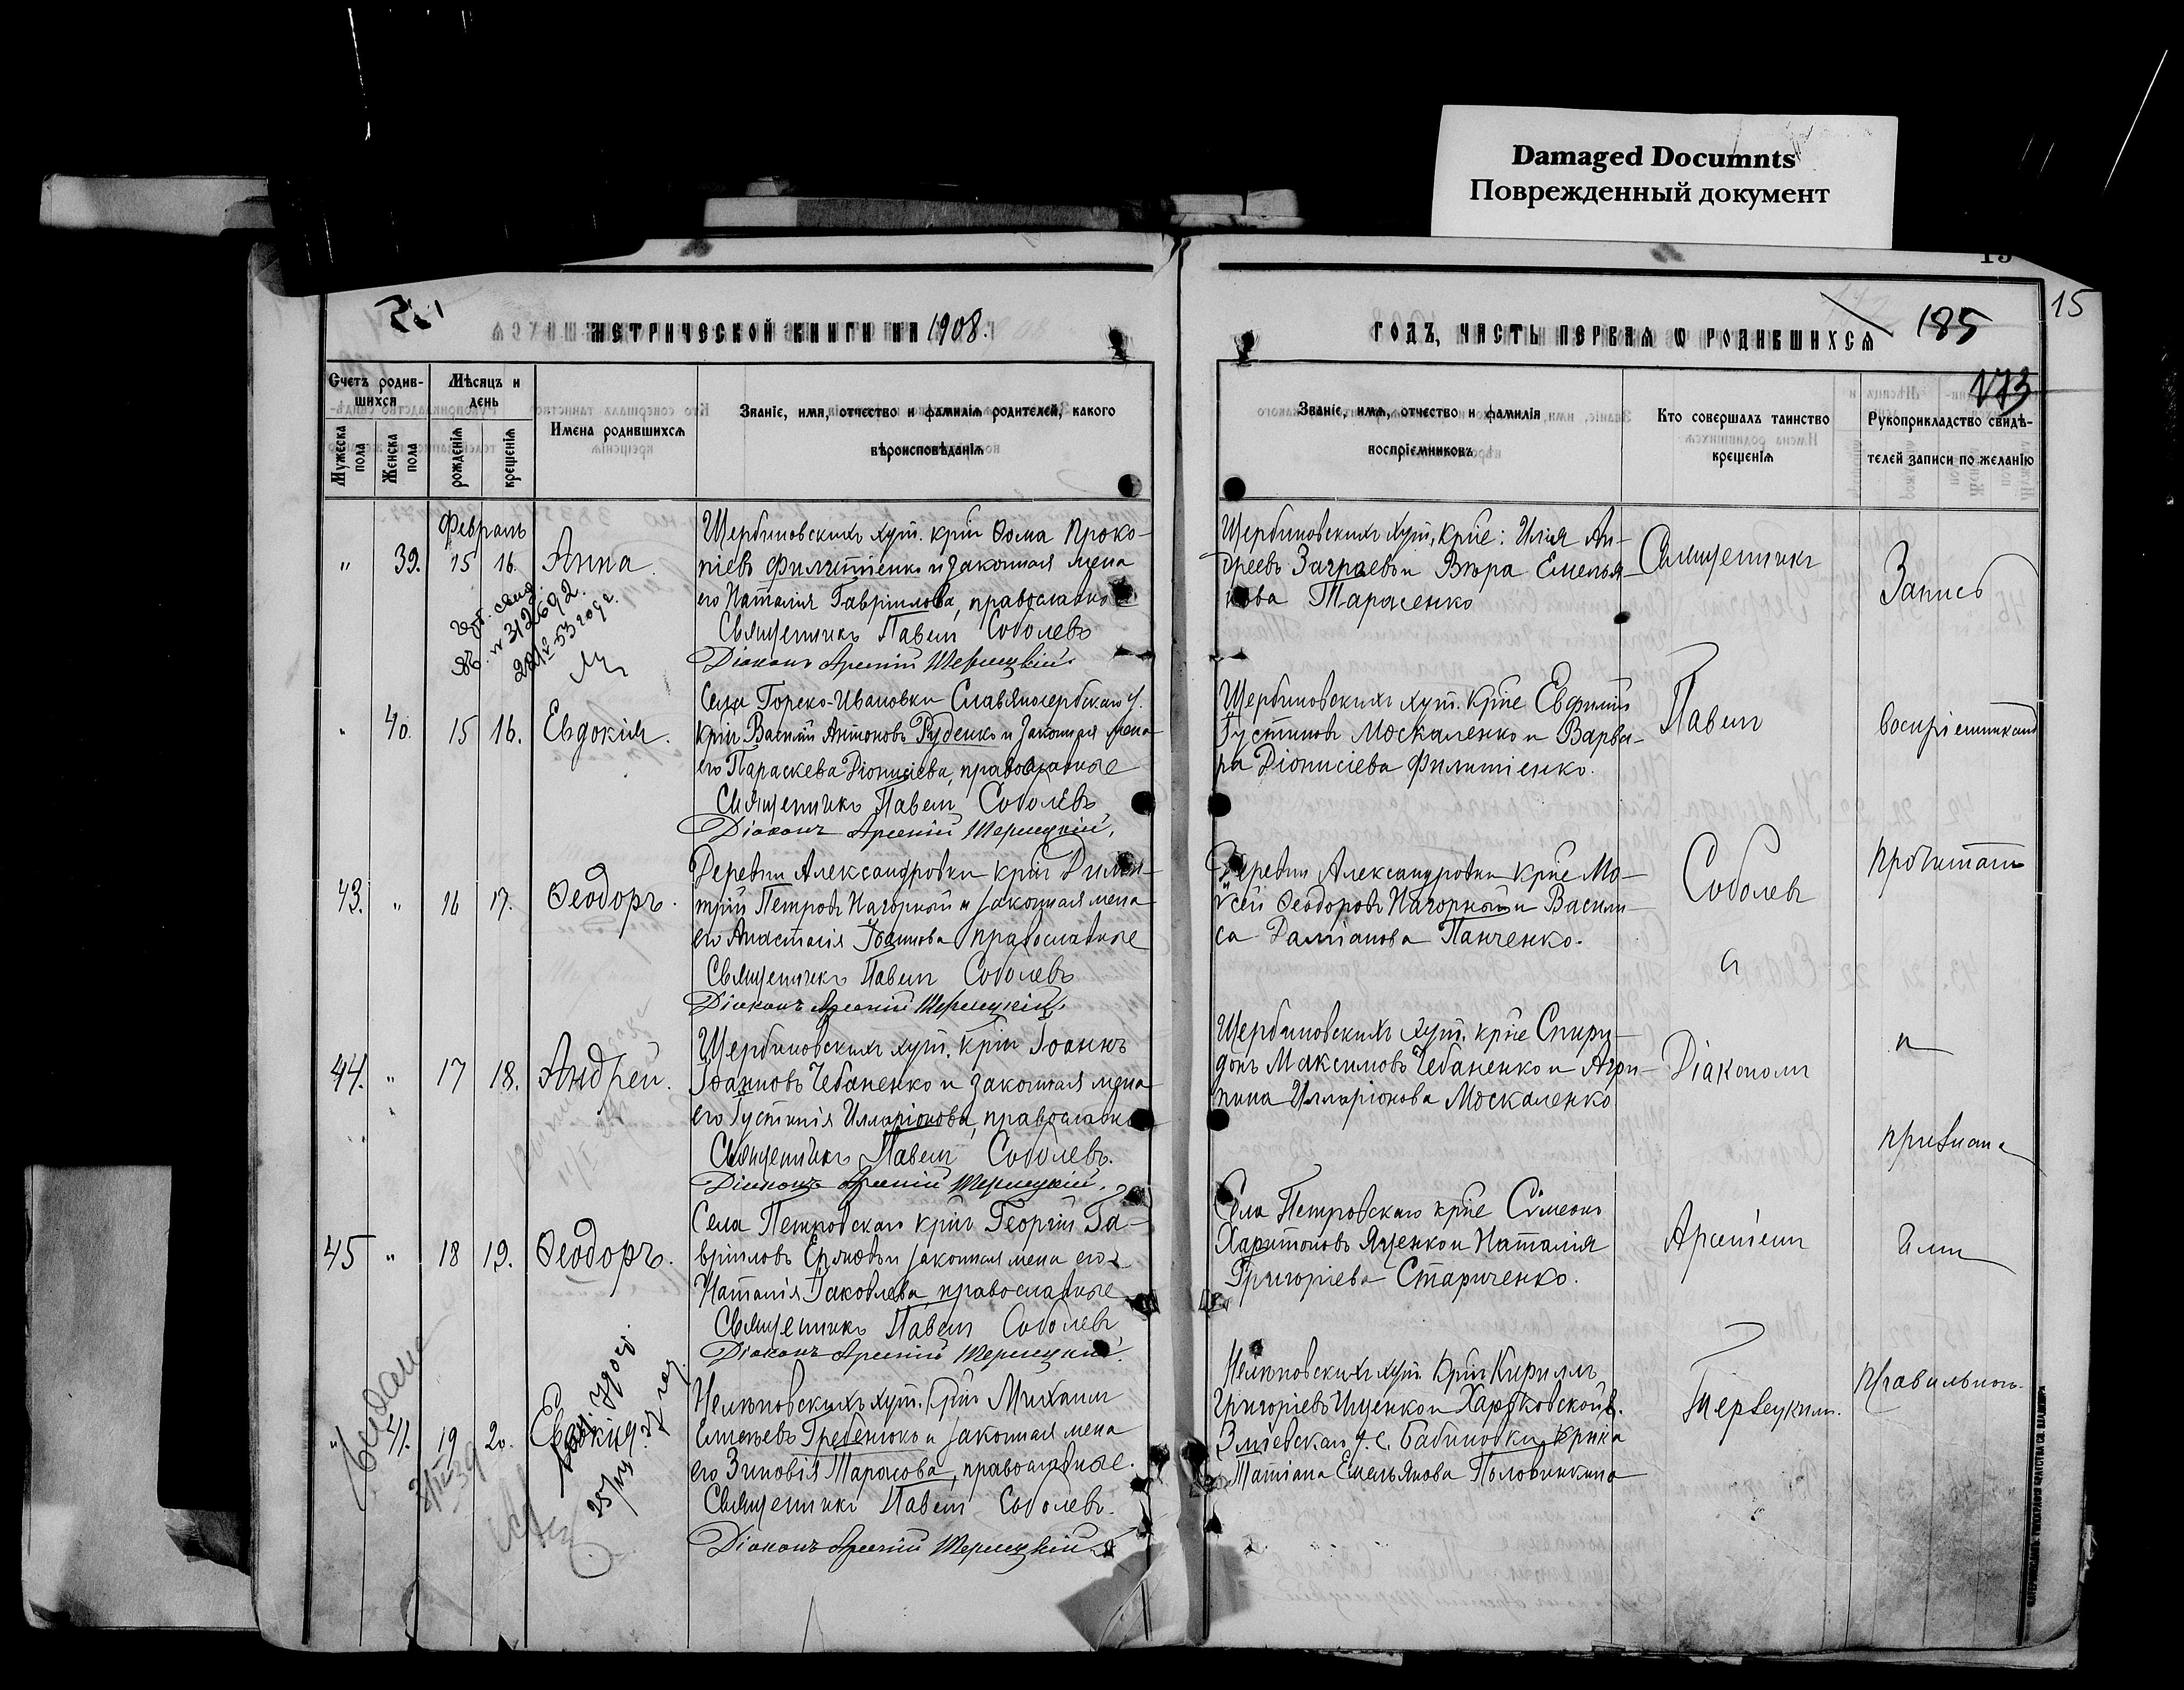 Damaged Documnts
Поврежденный документ
15
185
173
МЕТРИЧЕСКОЙ КНИГИ НА 1908.
ГОДЪ, ЧАСТЬ ПЕРВАЯ О РОДИВШИХСЯ
Счетъ родив-
шихся
Мужеска пола
Женска пола
Мѣсяцъ и
день
рожденія
крещенія
Имена родившихся
Званіе, имя, отчество и фамилія родителей, какого
вѣроисповѣданія
Званіе, имя, отчество и фамилія
воспріемниковъ
Кто совершалъ таинство
крещенія
Рукоприкладство свидѣ-
телей записи по желанію
Февраль
" 39. 15 16. Анна.
Щербиновскихъ хут. крнъ Ѳома Проко-
піевъ Филипіенко и законная жена
его Наталія Гавріилова, православные
Священникъ Павелъ Соболевъ
Діаконъ Арсеній Терлецкій.
Щербиновскихъ хут. крне: Илія Ан-
дреевъ Заграевъ и Вѣра Емелья-
нова Тарасенко
№ 312692.
" 40. 15 16. Евдокія.
Села Горско-Ивановки Славяносербскаго у.
крнъ Василій Антоновъ Руденко и законная жена
его Параскева Діонисіева, православные
Священникъ Павелъ Соболевъ
Діаконъ Арсеній Терлецкій.
Щербиновскихъ хут. крне Евфимій
Іустиновъ Москаленко и Варва-
ра Діонисіева Филипіенко.
43. " 16 17. Ѳеодоръ.
Деревни Александровки крнъ Дими-
трій Петровъ Нагорный и законная жена
его Анастасія Іоаннова православные
Священникъ Павелъ Соболевъ
Діаконъ Арсеній Терлецкій.
Деревни Александровки крне Мо-
исей Ѳеодоровъ Нагорный и Васили-
са Даміанова Панченко.
44. " 17 18. Андрей.
Щербиновскихъ хут. крнъ Іоаннъ
Іоанновъ Чебаненко и законная жена
его Іустинія Илларіонова, православные
Священникъ Павелъ Соболевъ.
Діаконъ Арсеній Терлецкій.
Щербиновскихъ хут. крне Спири-
донъ Максимовъ Чебаненко и Агри-
пина Илларіонова Москаленко
45 " 18 19. Ѳеодоръ.
Села Петровскаго крнъ Георгій Га-
вріиловъ и законная жена его
Наталія Іаковлева, православные
Священникъ Павелъ Соболевъ
Діаконъ Арсеній Терлецкій.
Села Петровскаго крне Сѵмеонъ
Харитоновъ Яценко и Наталія
Григоріева Стариченко.
" 41. 19 20. Евдокія.
Нелѣповскихъ хут. крнъ Михаилъ
Гребенюкъ и законная жена
его Зиновія Тарасова, православные.
Священникъ Павелъ Соболевъ.
Діаконъ Арсеній Терлецкій
Нелѣповскихъ хут. крнъ Кириллъ
Григоріевъ Ищенко и Харьковской г.
Зміевскаго у. с. Бабиновки крнка
Татіана Емельянова Половинкина
Священникъ
Павелъ
Соболевъ
и
Діакономъ
Арсеніемъ
Терлецкимъ.
Запись
воспріемниками
прочитана
и
признана
ими
правильною.